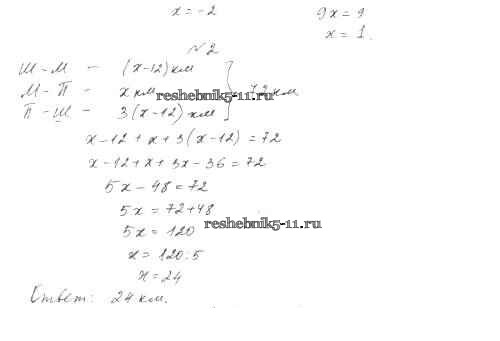 x = -2
9x = 9
x = 1.
№2
Ш-М - (x-12) км
М-П - x км
П-Ш - 3(x-12) км
72 км
reshebnik5-11.ru
x-12 + x + 3(x-12) = 72
x-12+x+3x-36=72
5x-48=72
5x = 72+48
5x = 120
reshebnik5-11.ru
x = 120:5
x = 24
Ответ: 24 км.